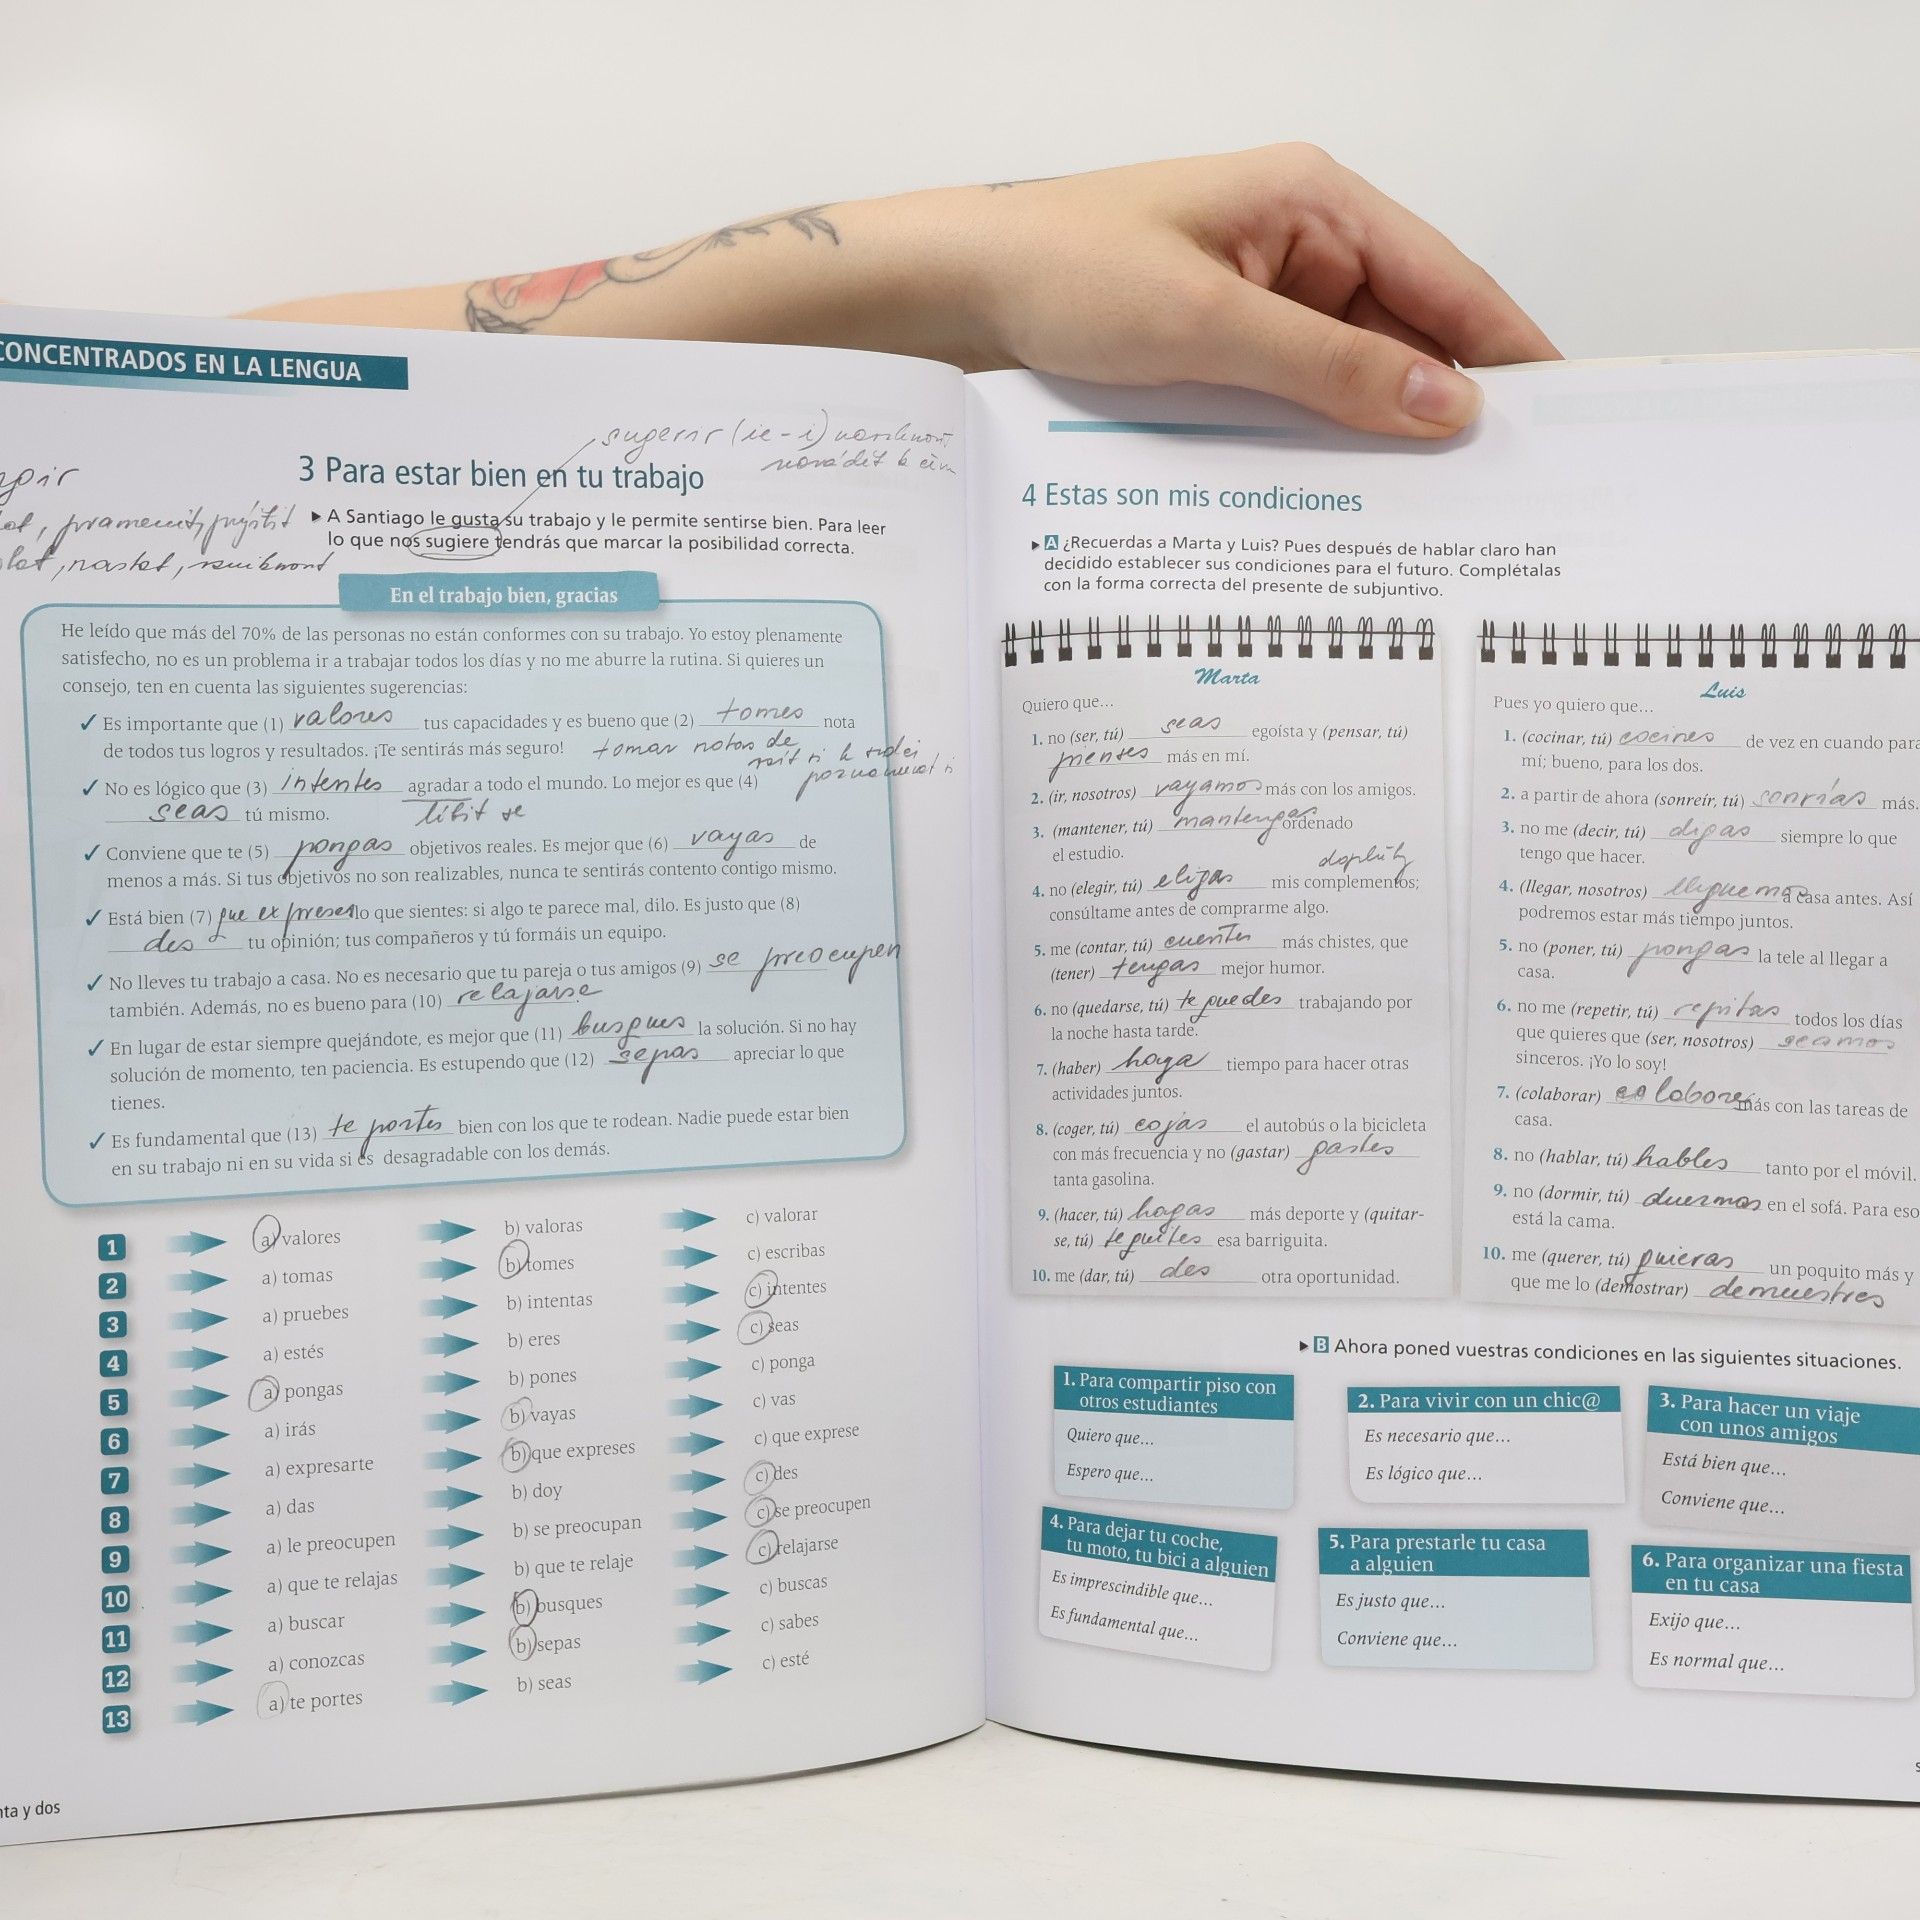 CONCENTRADOS EN LA LENGUA
sugerir (ie-i)
3 Para estar bien en tu trabajo
▶ A Santiago le gusta su trabajo y le permite sentirse bien. Para leer
lo que nos sugiere tendrás que marcar la posibilidad correcta.
En el trabajo bien, gracias
He leído que más del 70% de las personas no están conformes con su trabajo. Yo estoy plenamente
satisfecho, no es un problema ir a trabajar todos los días y no me aburre la rutina. Si quieres un
consejo, ten en cuenta las siguientes sugerencias:
✓ Es importante que (1) valores tus capacidades y es bueno que (2) tomes nota
de todos tus logros y resultados. ¡Te sentirás más seguro! tomar notas de
✓ No es lógico que (3) intentes agradar a todo el mundo. Lo mejor es que (4)
seas tú mismo. líbit se
✓ Conviene que te (5) pongas objetivos reales. Es mejor que (6) vayas de
menos a más. Si tus objetivos no son realizables, nunca te sentirás contento contigo mismo.
✓ Está bien (7) que expreses lo que sientes: si algo te parece mal, dilo. Es justo que (8)
des tu opinión; tus compañeros y tú formáis un equipo.
✓ No lleves tu trabajo a casa. No es necesario que tu pareja o tus amigos (9) se preocupen
también. Además, no es bueno para (10) relajarse
✓ En lugar de estar siempre quejándote, es mejor que (11) busques la solución. Si no hay
solución de momento, ten paciencia. Es estupendo que (12) sepas apreciar lo que
tienes.
✓ Es fundamental que (13) te portes bien con los que te rodean. Nadie puede estar bien
en su trabajo ni en su vida si es desagradable con los demás.
1 a) valores b) valoras c) valorar
2 a) tomas b) tomes c) escribas
3 a) pruebes b) intentas c) intentes
4 a) estés b) eres c) seas
5 a) pongas b) pones c) ponga
6 a) irás b) vayas c) vas
7 a) expresarte b) que expreses c) que exprese
8 a) das b) doy c) des
9 a) le preocupen b) se preocupan c) se preocupen
10 a) que te relajas b) que te relaje c) relajarse
11 a) buscar b) busques c) buscas
12 a) conozcas b) sepas c) sabes
13 a) te portes b) seas c) esté
y dos
4 Estas son mis condiciones
▶ A ¿Recuerdas a Marta y Luis? Pues después de hablar claro han
decidido establecer sus condiciones para el futuro. Complétalas
con la forma correcta del presente de subjuntivo.
Marta
Quiero que...
1. no (ser, tú) seas egoísta y (pensar, tú)
pienses más en mí.
2. (ir, nosotros) vayamos más con los amigos.
3. (mantener, tú) mantengas ordenado
el estudio.
4. no (elegir, tú) elijas mis complementos;
consúltame antes de comprarme algo.
5. me (contar, tú) cuentes más chistes, que
(tener) tengas mejor humor.
6. no (quedarse, tú) te quedes trabajando por
la noche hasta tarde.
7. (haber) haya tiempo para hacer otras
actividades juntos.
8. (coger, tú) cojas el autobús o la bicicleta
con más frecuencia y no (gastar) gastes
tanta gasolina.
9. (hacer, tú) hagas más deporte y (quitar-
se, tú) te quites esa barriguita.
10. me (dar, tú) des otra oportunidad.
Luis
Pues yo quiero que...
1. (cocinar, tú) cocines de vez en cuando para
mí; bueno, para los dos.
2. a partir de ahora (sonreír, tú) sonrías más.
3. no me (decir, tú) digas siempre lo que
tengo que hacer.
4. (llegar, nosotros) lleguemos a casa antes. Así
podremos estar más tiempo juntos.
5. no (poner, tú) pongas la tele al llegar a
casa.
6. no me (repetir, tú) repitas todos los días
que quieres que (ser, nosotros) seamos
sinceros. ¡Yo lo soy!
7. (colaborar) colabores más con las tareas de
casa.
8. no (hablar, tú) hables tanto por el móvil.
9. no (dormir, tú) duermas en el sofá. Para eso
está la cama.
10. me (querer, tú) quieras un poquito más y
que me lo (demostrar) demuestres
▶ B Ahora poned vuestras condiciones en las siguientes situaciones.
1. Para compartir piso con
otros estudiantes
Quiero que...
Espero que...
2. Para vivir con un chic@
Es necesario que...
Es lógico que...
3. Para hacer un viaje
con unos amigos
Está bien que...
Conviene que...
4. Para dejar tu coche,
tu moto, tu bici a alguien
Es imprescindible que...
Es fundamental que...
5. Para prestarle tu casa
a alguien
Es justo que...
Conviene que...
6. Para organizar una fiesta
en tu casa
Exijo que...
Es normal que...